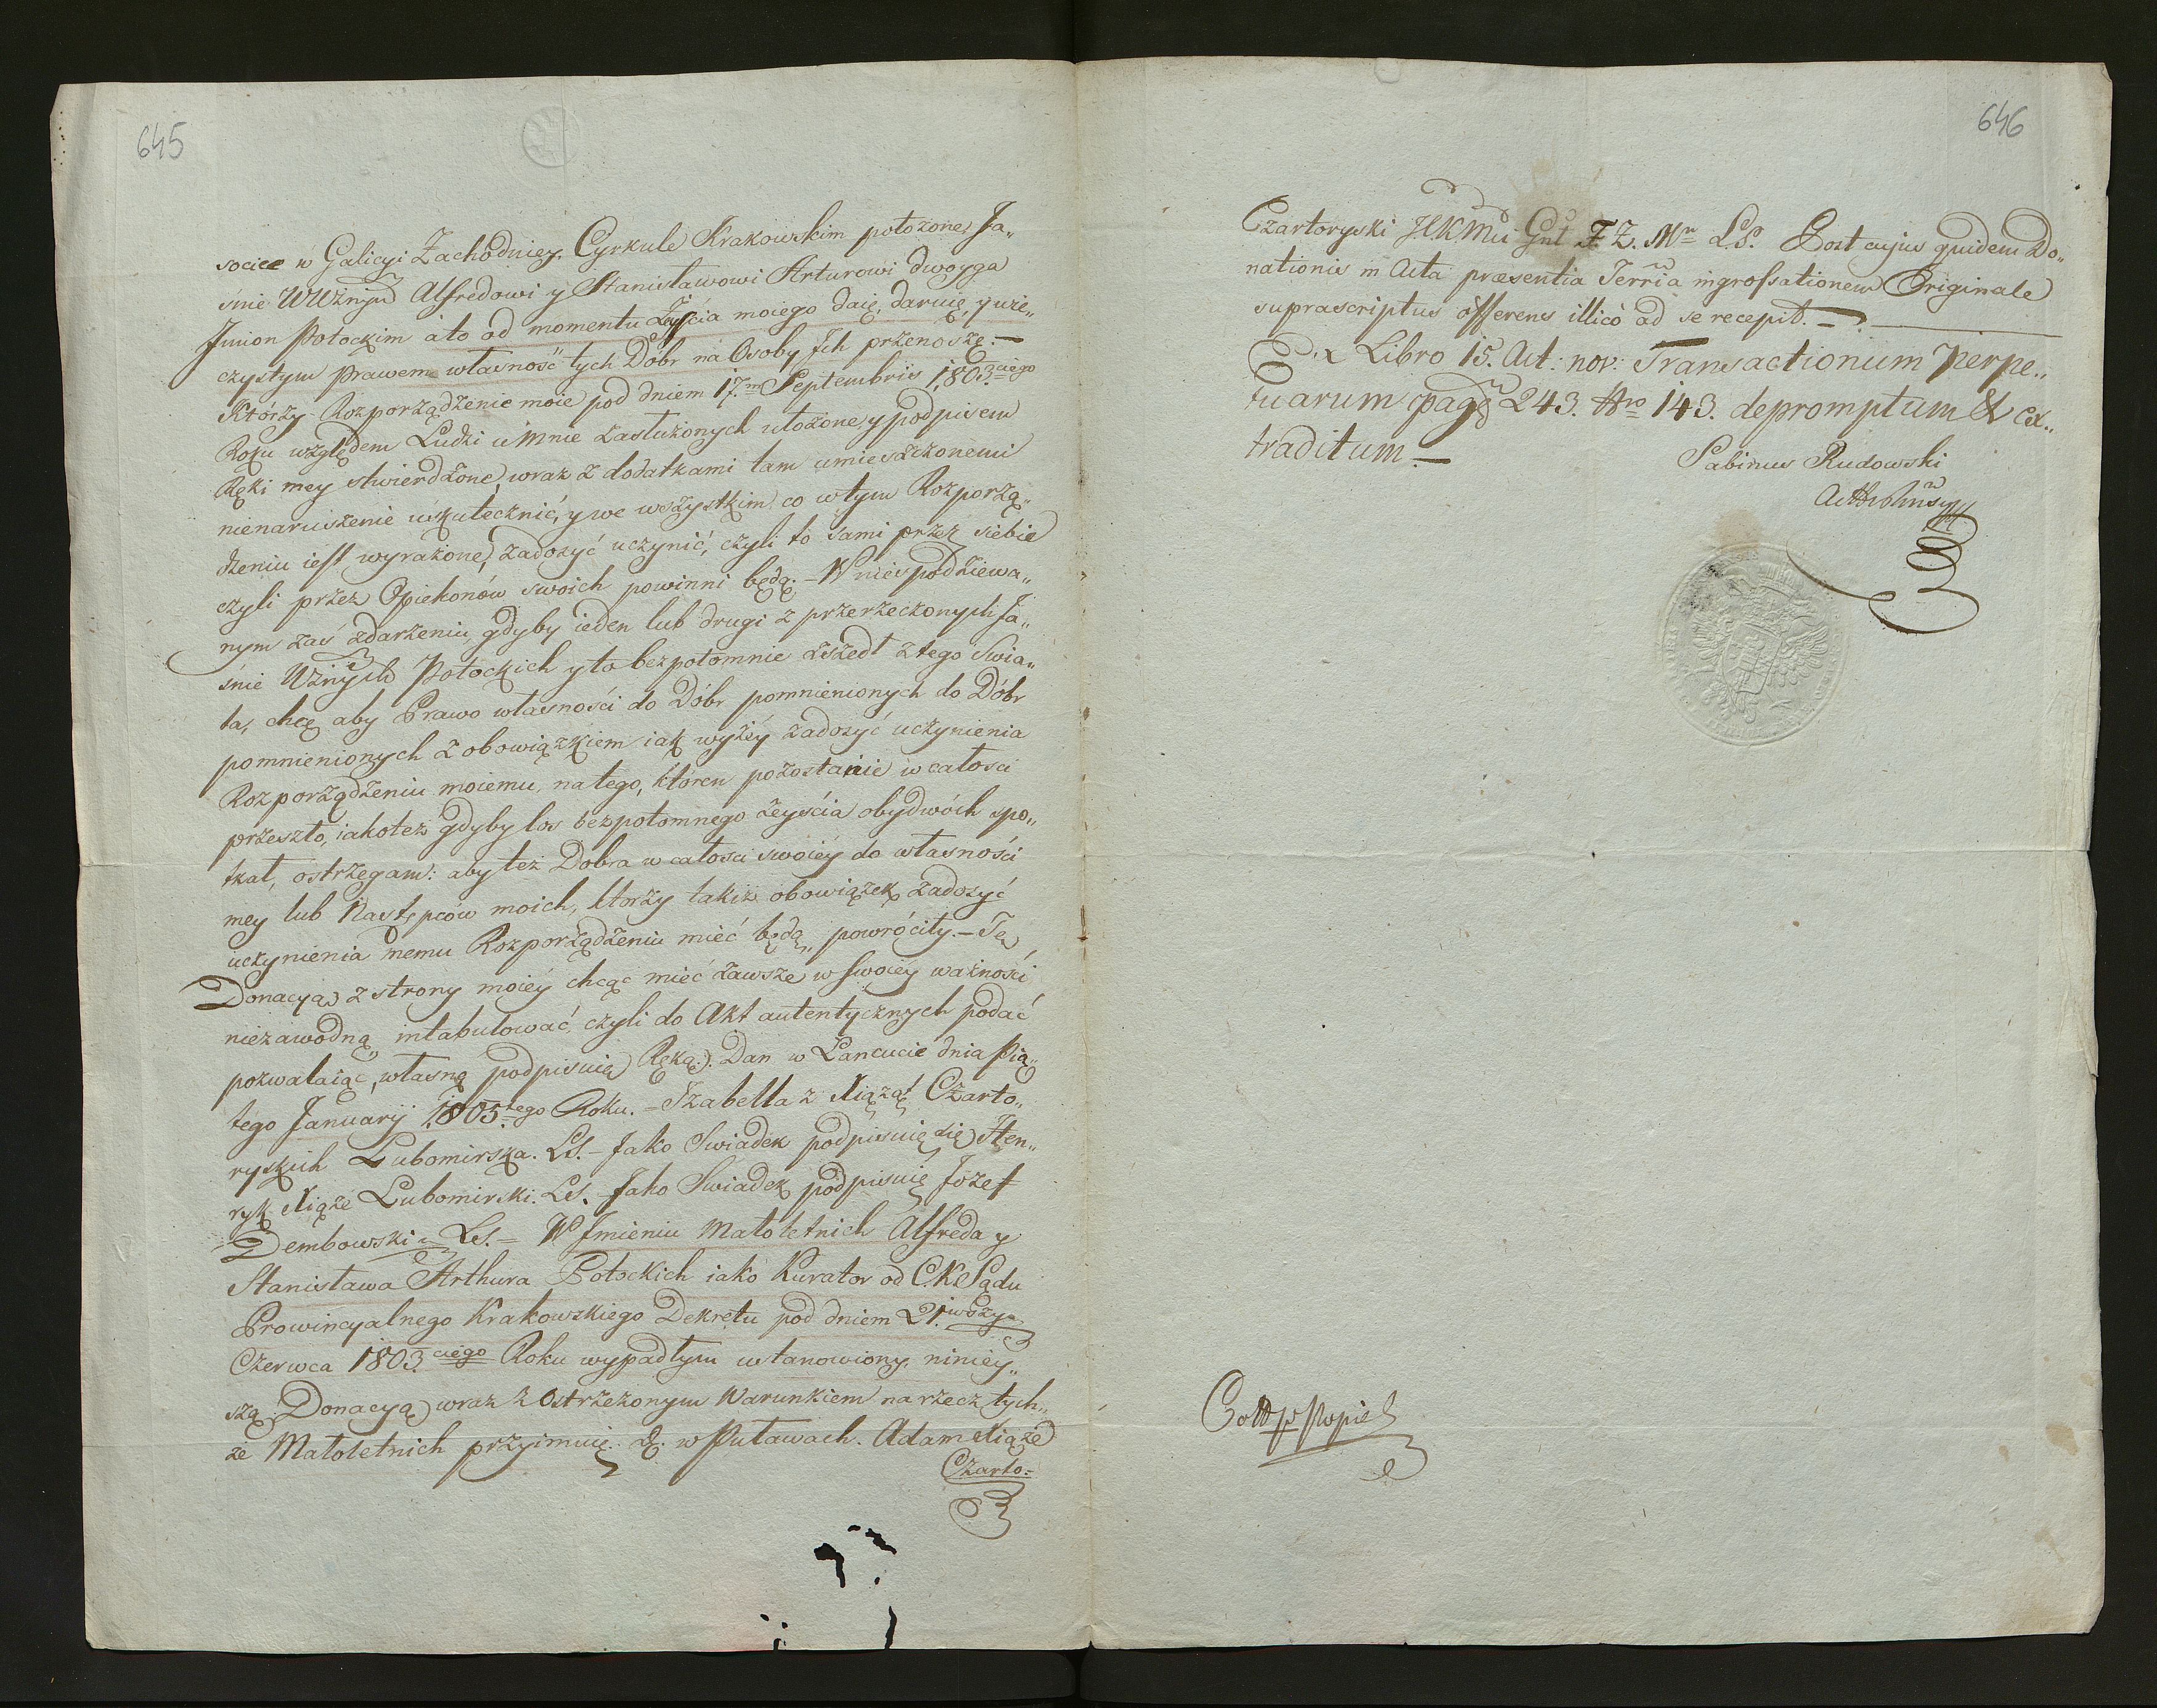 645
socice w Galicyi Zachodniey, Cyrkule Krakowskim położone, Ja„
śnie WWżnym Alfredowi y Stanisławowi Arturowi dwoyga
Jmion Potockim a to od momentu Zeyścia moiego daię, daruię, y wie„
czystym Prawem własność tych Dóbr na Osoby Jch przenoszę. —
Którzy Rozporządzenie moie pod dniem 17.m Septembris 1803.ciego
Roku względem Ludzi u mnie zasłużonych ułożone, y podpisem
Ręki mey stwierdzone, wraz z dodatkami tam umieszczonemi
nienaruszenie uskutecznić, y we wszystkim co w tym Rozporzą„
dzeniu iest wyrażone, zadosyć uczynić, czyli to sami przez siebie
czyli przez Opiekonów swoich powinni będą. — W niespodziewa„
nym zaś zdarzeniu, gdyby ieden lub drugi z przerzeczonych Ja„
śnie Wżnych Potockich y to bezpotomnie zszedł z tego Swia„
ta, chcę aby Prawo własności do Dóbr pomnienionych do Dóbr
pomnienionych z obowiązkiem iak wyżéy zadosyć uczynienia
Rozporządzeniu moiemu, na tego, któren pozostanie w całosci
przeszło, iakoteż gdyby los bezpotomnego zeyścia obydwóch spo„
tkał, ostrzegam: aby też Dobra w całosci swoiéy do własności
mey lub Następców moich, ktorzy takiż obowiązek zadosyć
uczynienia memu Rozporządzeniu mieć będą, powróciły. — Tę
Donacyą z strony moiéy chcąc mieć zawsze w swoiéy ważności
niezawodną, intabulować, czyli do Akt autentycznych podać
pozwalaiąc, własną podpisuię Ręką. Dan w Lancucie dnia Pią„
tego Januarij 1805.tego Roku. — Jzabella z Xiążąt Czarto„
ryskich Lubomirska. LS. — Jako Swiadek podpisuię się Hen„
ryk Xiąże Lubomirski. LS. — Jako Swiadek podpisuię Józef
Dembowski LS. — W Jmieniu Małoletnich Alfreda y
Stanisława Arthura Potockich iako Kurator od C.K. Sądu
Prowincyalnego Krakowskiego Dekretu pod dniem 21.wszym
Czerwca 1803.ciego Roku wypadłym ustanowiony, niniéy„
szą Donacyą wraz z Ostrzeżonym Warunkiem na rzecz tych„
że Małoletnich przyimuię. D. w Puławach. Adam Xiąże
Czarto=
646
Czartoryski JCKMci Gnł F.Z.Mr. LS. Post cujus quidem Do„
nationis in Acta præsentia Terria ingrossationem Originale
suprascriptus offerens illicò ad se recepit. —
Ex Libro 15. Act: nov: Transactionum Perpe„
tuarum pag 243. Nro 143. depromptum & ex„
traditum. —
Sabinus Rudowski
Coll p Popiel